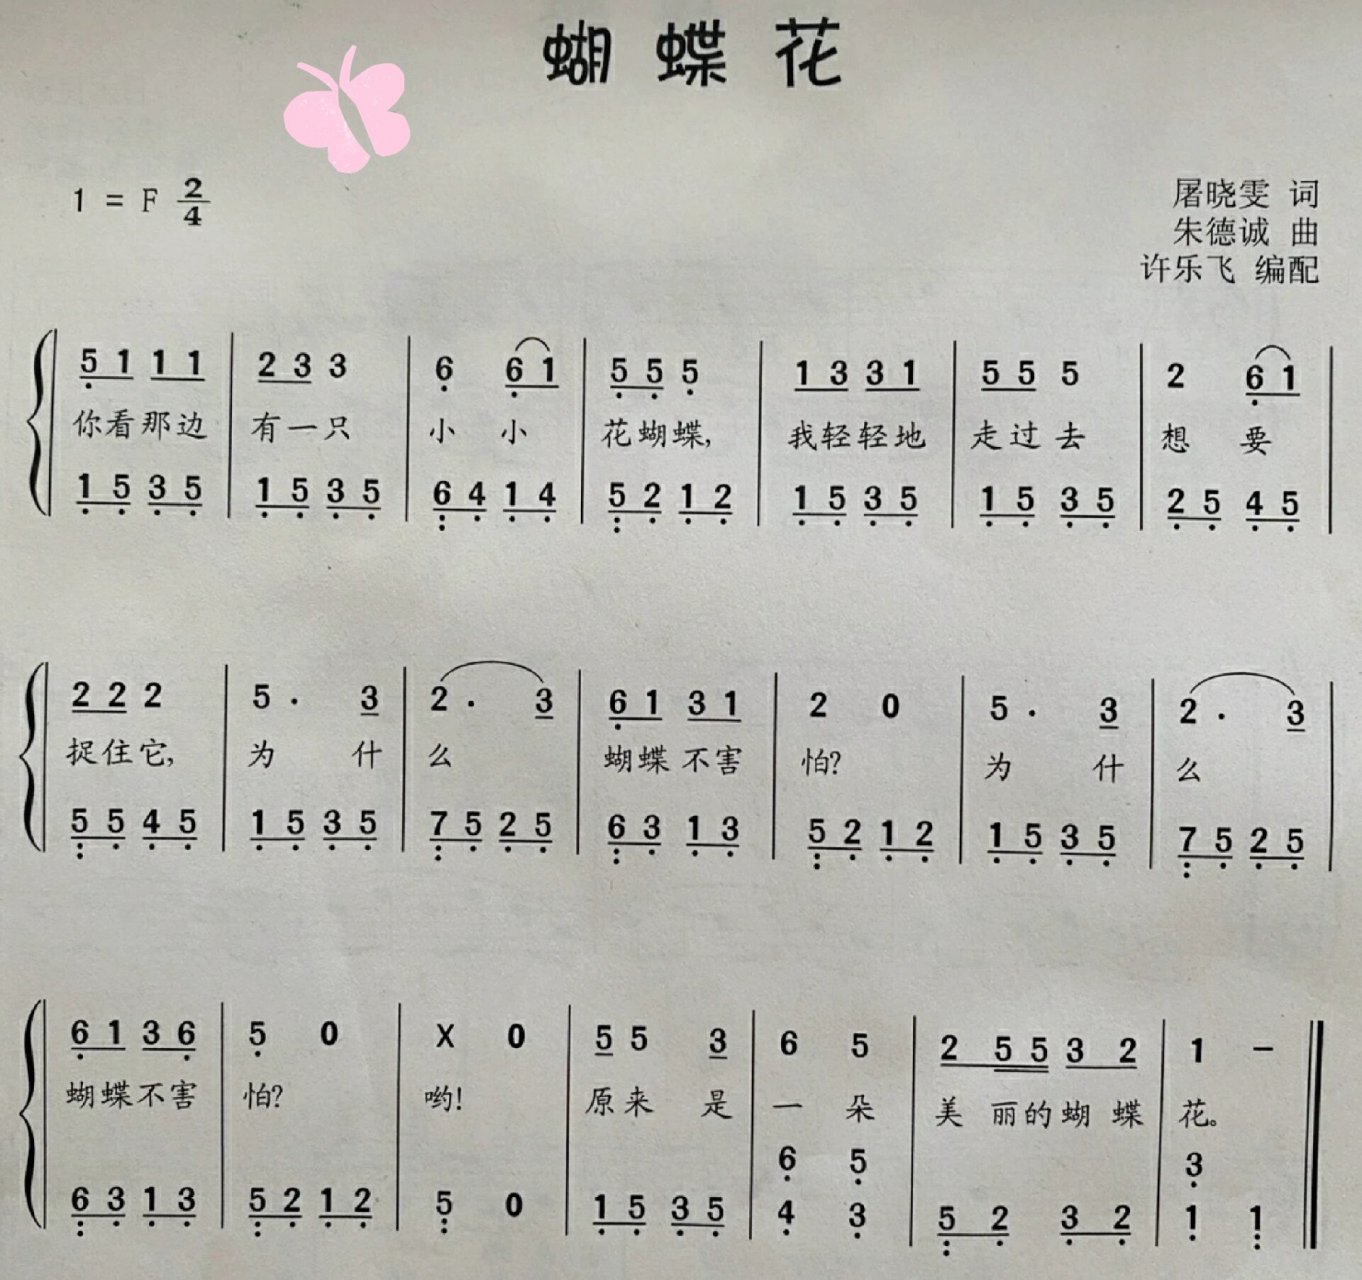 蝴蝶花
1 = F 2/4
屠晓雯 词
朱德诚 曲
许乐飞 编配
5̣ 1 1 1 | 2 3 3 | 6̣ 6̣ 1 | 5̣ 5̣ 5̣ | 1 3 3 1 | 5 5 5 | 2 6̣ 1 |
你看那边 有一只 小 小 花蝴蝶, 我轻轻地 走过去 想 要
1̣ 5̣ 3̣ 5̣ | 1̣ 5̣ 3̣ 5̣ | 6̤ 4̣ 1̣ 4̣ | 5̤ 2̣ 1̣ 2̣ | 1̣ 5̣ 3̣ 5̣ | 1̣ 5̣ 3̣ 5̣ | 2̣ 5̣ 4̣ 5̣ |
2 2 2 | 5 · 3 | 2 · 3 | 6̣ 1 3 1 | 2 0 | 5 · 3 | 2 · 3 |
捉住它, 为 什 么 蝴蝶不害 怕? 为 什 么
5̤ 5̣ 4̣ 5̣ | 1̣ 5̣ 3̣ 5̣ | 7̤ 5̣ 2̣ 5̣ | 6̤ 3̣ 1̣ 3̣ | 5̤ 2̣ 1̣ 2̣ | 1̣ 5̣ 3̣ 5̣ | 7̤ 5̣ 2̣ 5̣ |
6̣ 1 3 6̣ | 5̣ 0 | X 0 | 5 5 3 | 6 5 | 2 5 5 3 2 | 1 – |
蝴蝶不害 怕? 哟! 原来 是 一 朵 美 丽的蝴 蝶 花。
6̣ 5̣ 3̣
6̤ 3̣ 1̣ 3̣ | 5̤ 2̣ 1̣ 2̣ | 5̤ 0 | 1̣ 5̣ 3̣ 5̣ | 4̣ 3̣ | 5̤ 2̣ 3̣ 2̣ | 1̣ 1̤ |